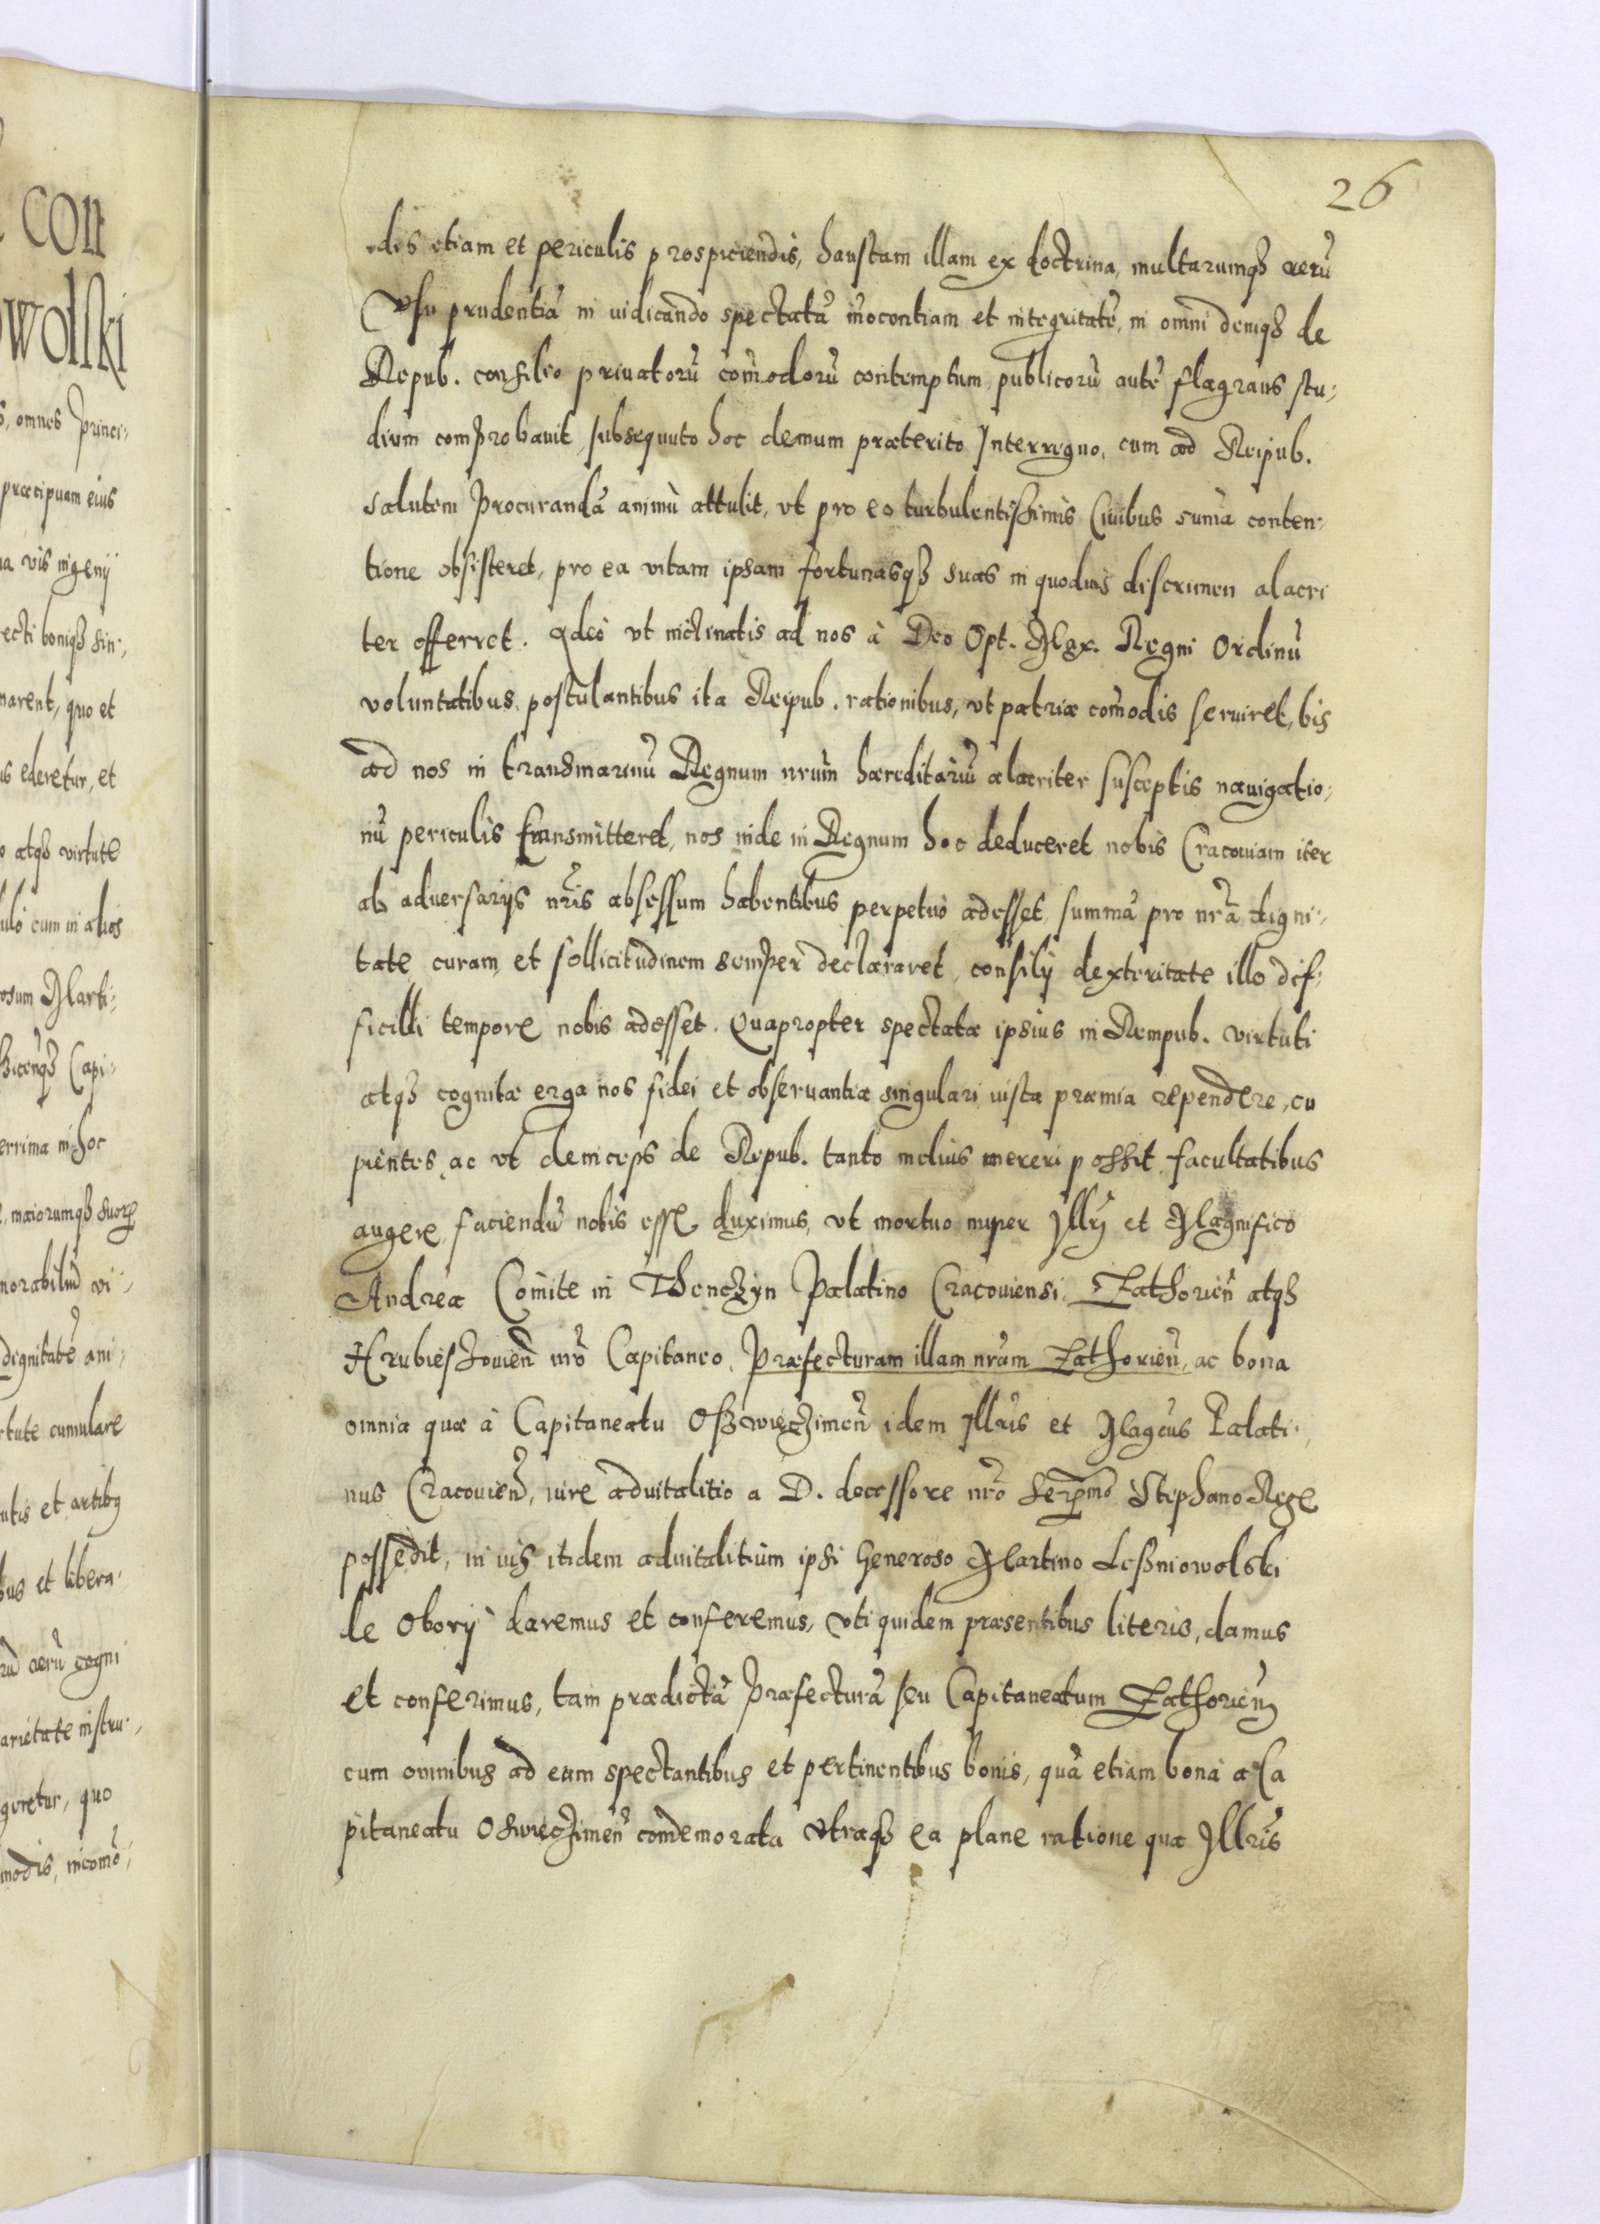 con
wolski
omnes princi-
præcipuam eius
vis ingenij
recti boniqȝ sin-
narent, quo et
ederetur, et
atqȝ virtute
cum in alios
Marti-
Capi-
in hoc
maiorumqȝ suorȝ
morabiliũ vi-
dignitatẽ ani-
cumulare
et artibȝ
et libera-
rerũ cogni
varietate instru-
quo
modis, incomõ-
26
dis etiam et periculis prospiciendis, haustam illam ex doctrina, multarumqȝ rerũ
Vsu prudentiã in iudicando spectatã iñocentiam et integritatẽ, in omni deniqȝ de
Repub. consilio priuatorũ com̃odorũ contemptum, publicorũ autẽ flagrans stu-
dium comprobauit, subsequuto hoc demum præterito Interregno, cum ad Reipub.
salutem procurandã animũ attulit, vt pro eo turbulentissimis Ciuibus sum̃a conten-
tione obsisteret, pro ea vitam ipsam fortunasqȝ suas in quoduis discrimen alacri
ter offerret. Adeò vt inclinatis ad nos à Deo Opt. Max. Regni Ordinũ
voluntatibus, postulantibus ita Reipub. rationibus, vt patriæ com̃odis seruiret, bis
ad nos in transmarinũ Regnum nrum̃ hæreditariũ alacriter susceptis nauigatio-
nũ periculis transmitteret, nos inde in Regnum hoc deduceret nobis Cracouiam iter
ab aduersarijs nr̃is obsessum habentibus perpetuò adesset, summã pro nrã digni-
tate curam et sollicitudinem semper declararet, consilij dexteritate illo dif-
ficilli tempore nobis adesset. Quapropter spectatæ ipsius in Rempub. virtuti
atqȝ cognitæ erga nos fidei et obseruantiæ singulari iusta præmia rependere, cu
pientes, ac vt deinceps de Repub. tanto melius mereri possit, facultatibus
augere, faciendũ nobis esse duximus, vt mortuo nuper Illr̃i et Magnifico
Andrea Comite in Thenczyn Palatino Cracouiensi, Lathouien̄ atqȝ
Hrubieszouien̄ nrõ Capitaneo, Præfecturam illam nram̃ Lathouien̄, ac bona
omnia quæ à Capitaneatu Oßwięczimen̄ idem Illr̃is et Magcus Palati-
nus Cracouien̄, iure aduitalitio a D. decessore nrõ Serm̃o Stephano Rege
possedit, in ius itidem aduitalitium ipsi Generoso Martino Leßniowolski
de Obory daremus et conferemus, vti quidem præsentibus literis, damus
et conferimus, tam prædictã Præfecturã seu Capitaneatum Lathouien̄
cum omnibus ad eam spectantibus et pertinentibus bonis, quã etiam bona à Ca
pitaneatu Oswięczimen̄ com̃emorata vtraqȝ ea plane ratione qua Illr̃is